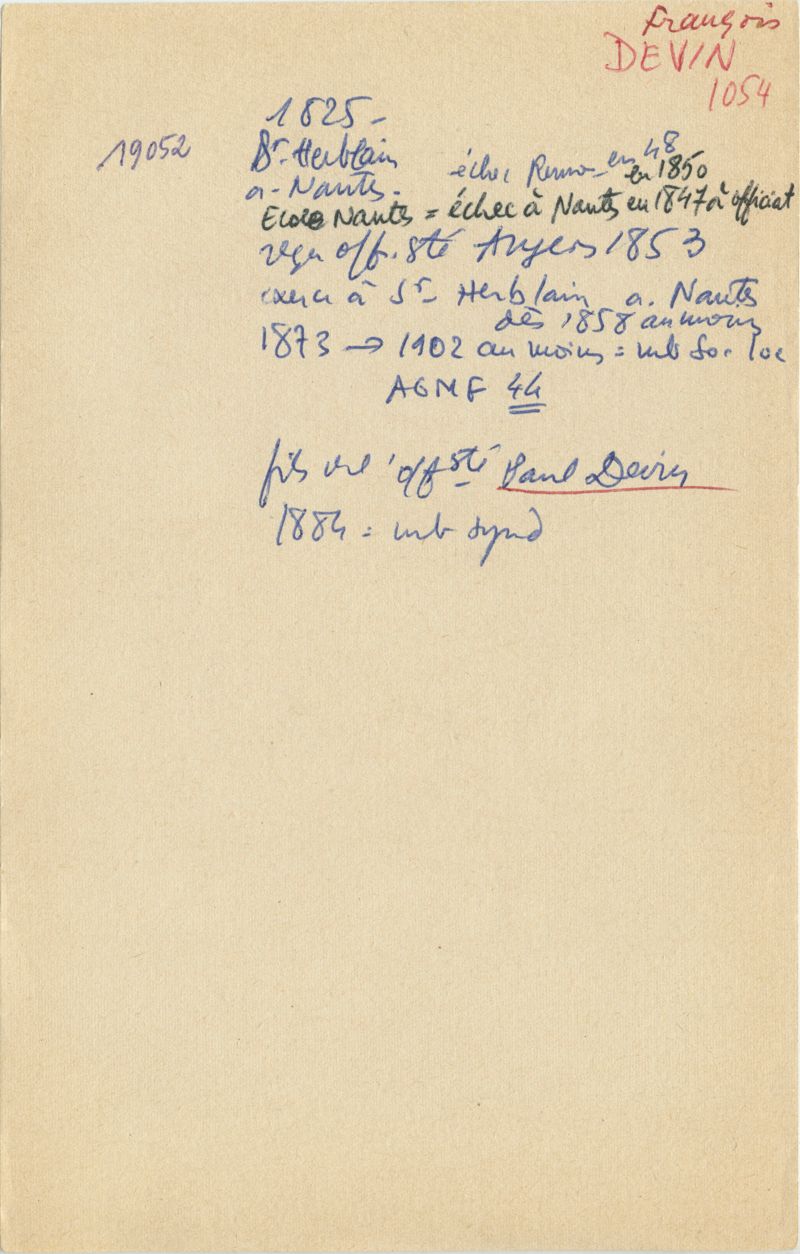 François
DEVIN
1054
1825 -
19052
St-Herblain
échec Rennes en 48
en 1850
a. Nantes.
Ecole Nantes = échec à Nantes en 1847 à officiat
reçu off. sté Angers 1853
exerce à St- Herblain a. Nantes
dès 1858 au moins
1873 → 1902 au moins = mb Soc loc
AGMF 44
fils de l'off sté Paul Devin
1884 = mb synd